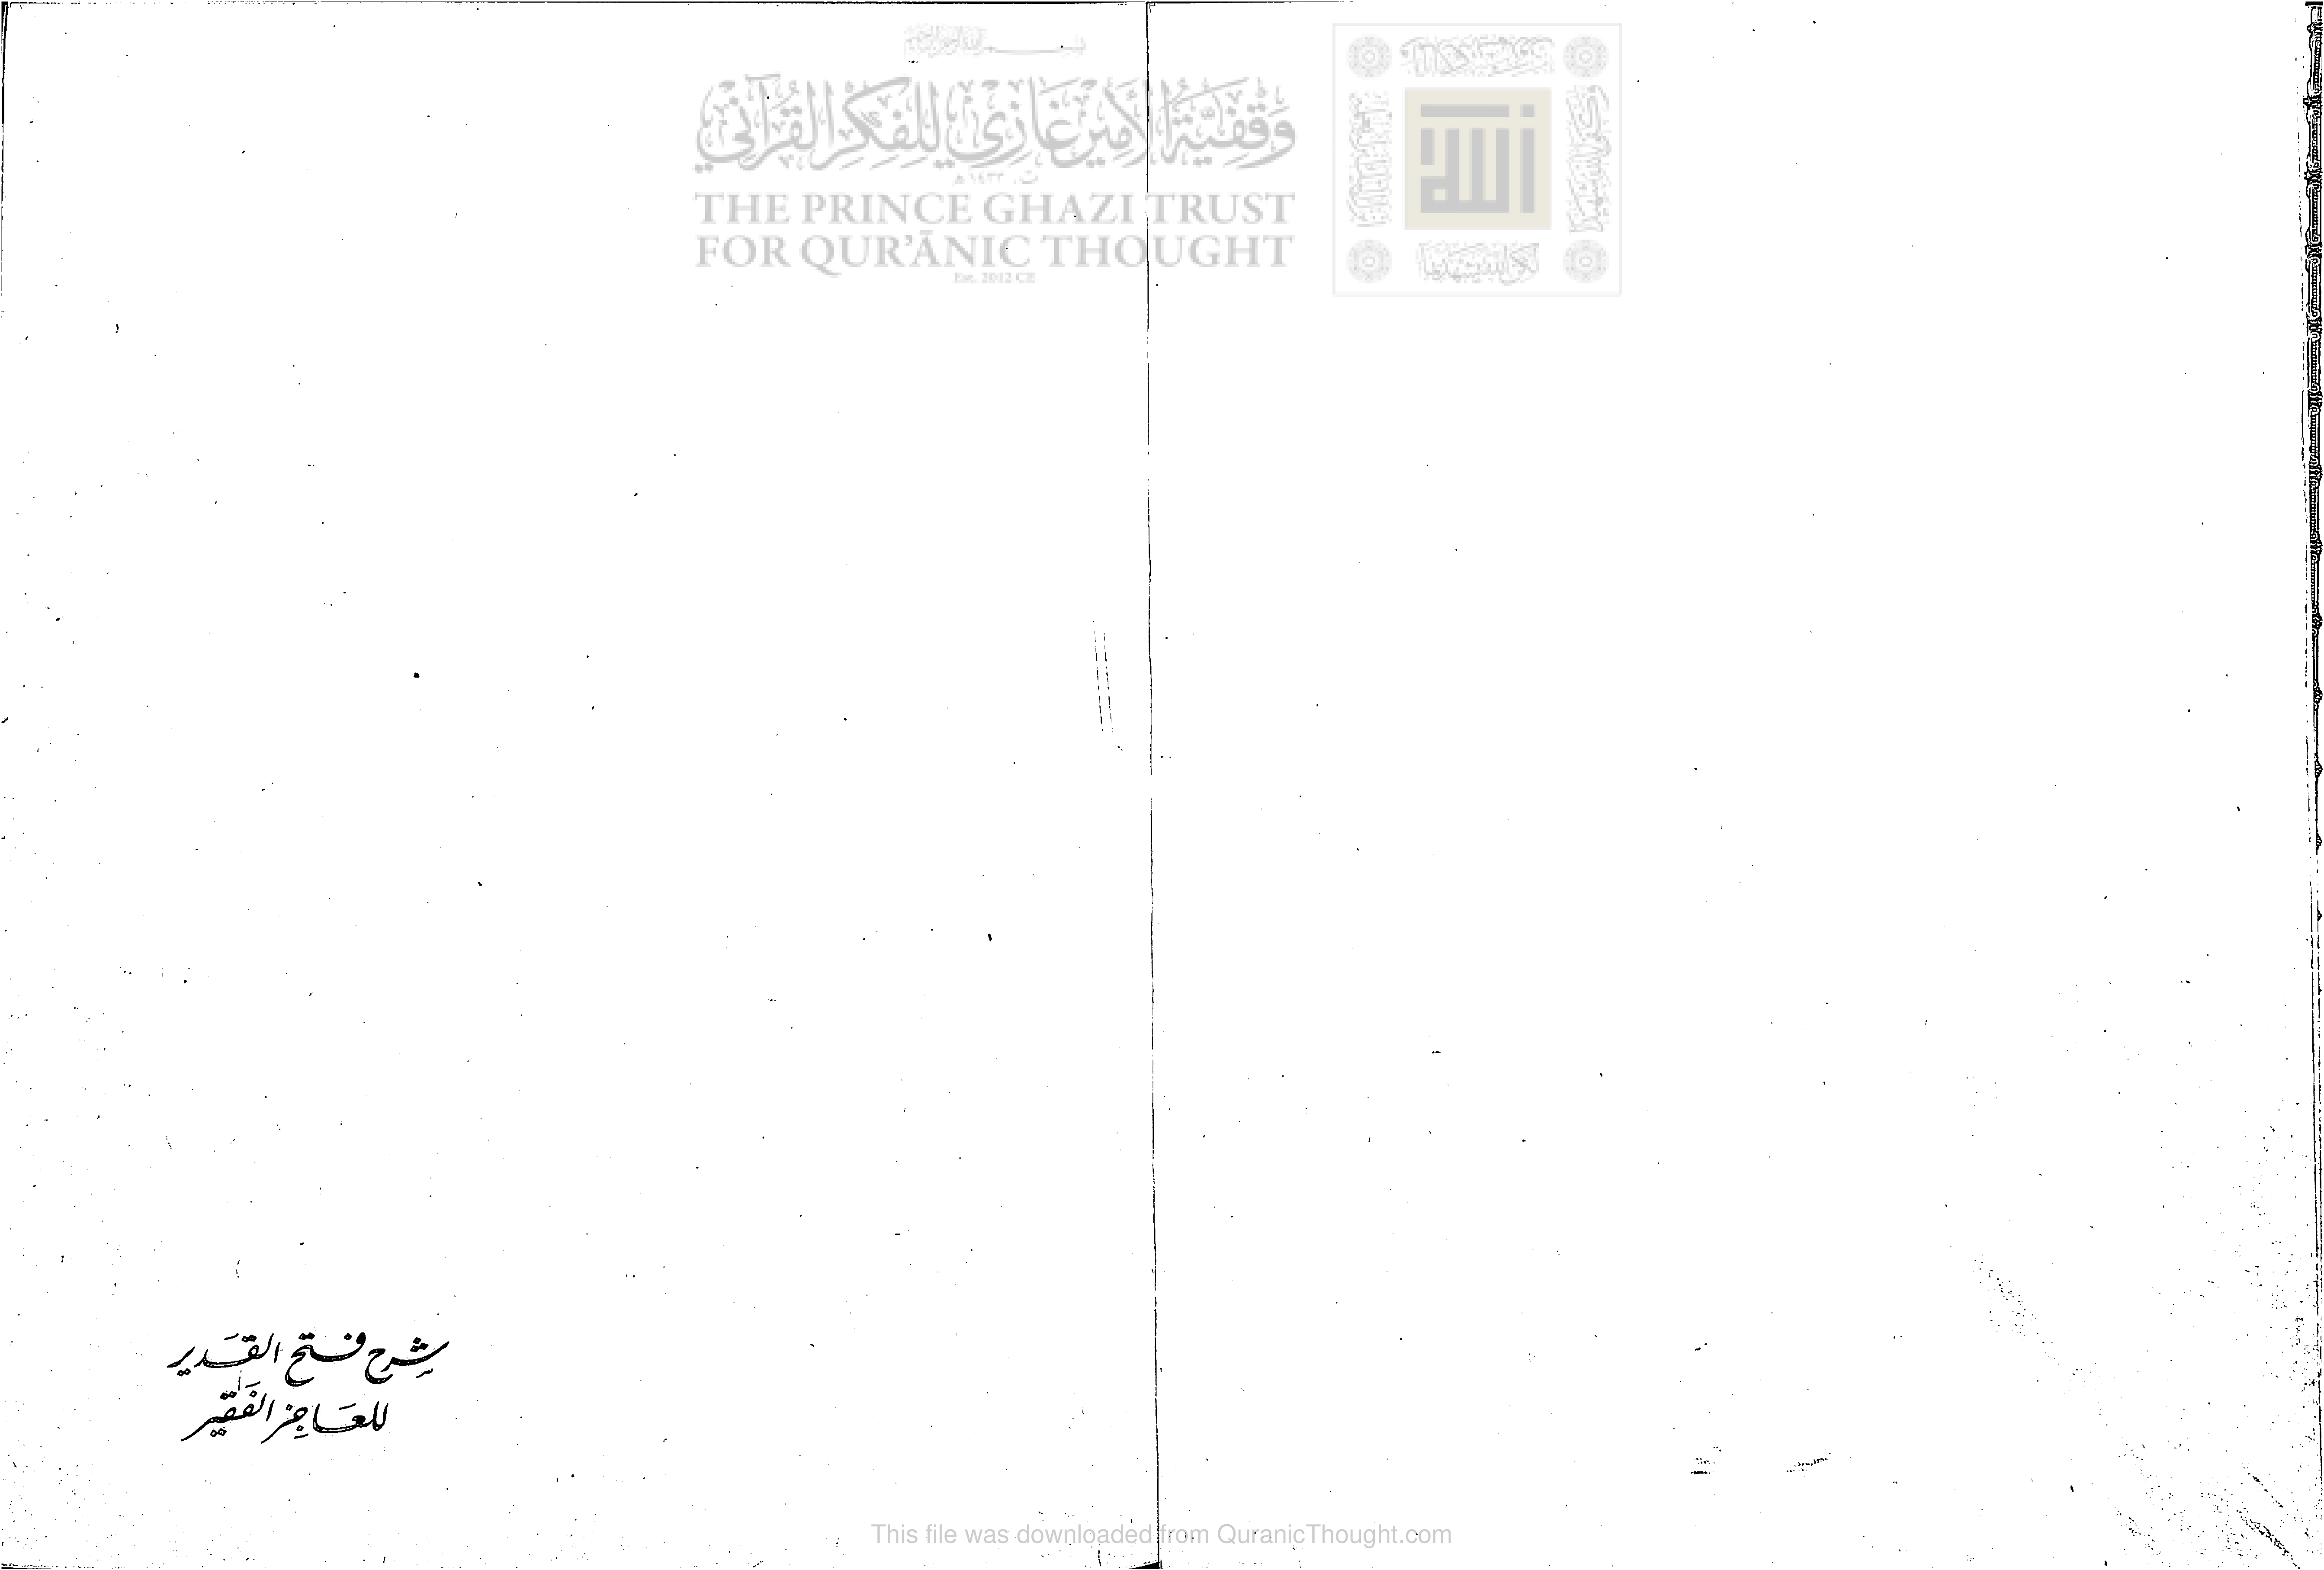 وقفية الأمير غازي للفكر القرآني
THE PRINCE GHAZI TRUST
FOR QUR'ĀNIC THOUGHT
Est. 2012 CE
الله
شرح فتح القدير
للعاجز الفقير
This file was downloaded from QuranicThought.com